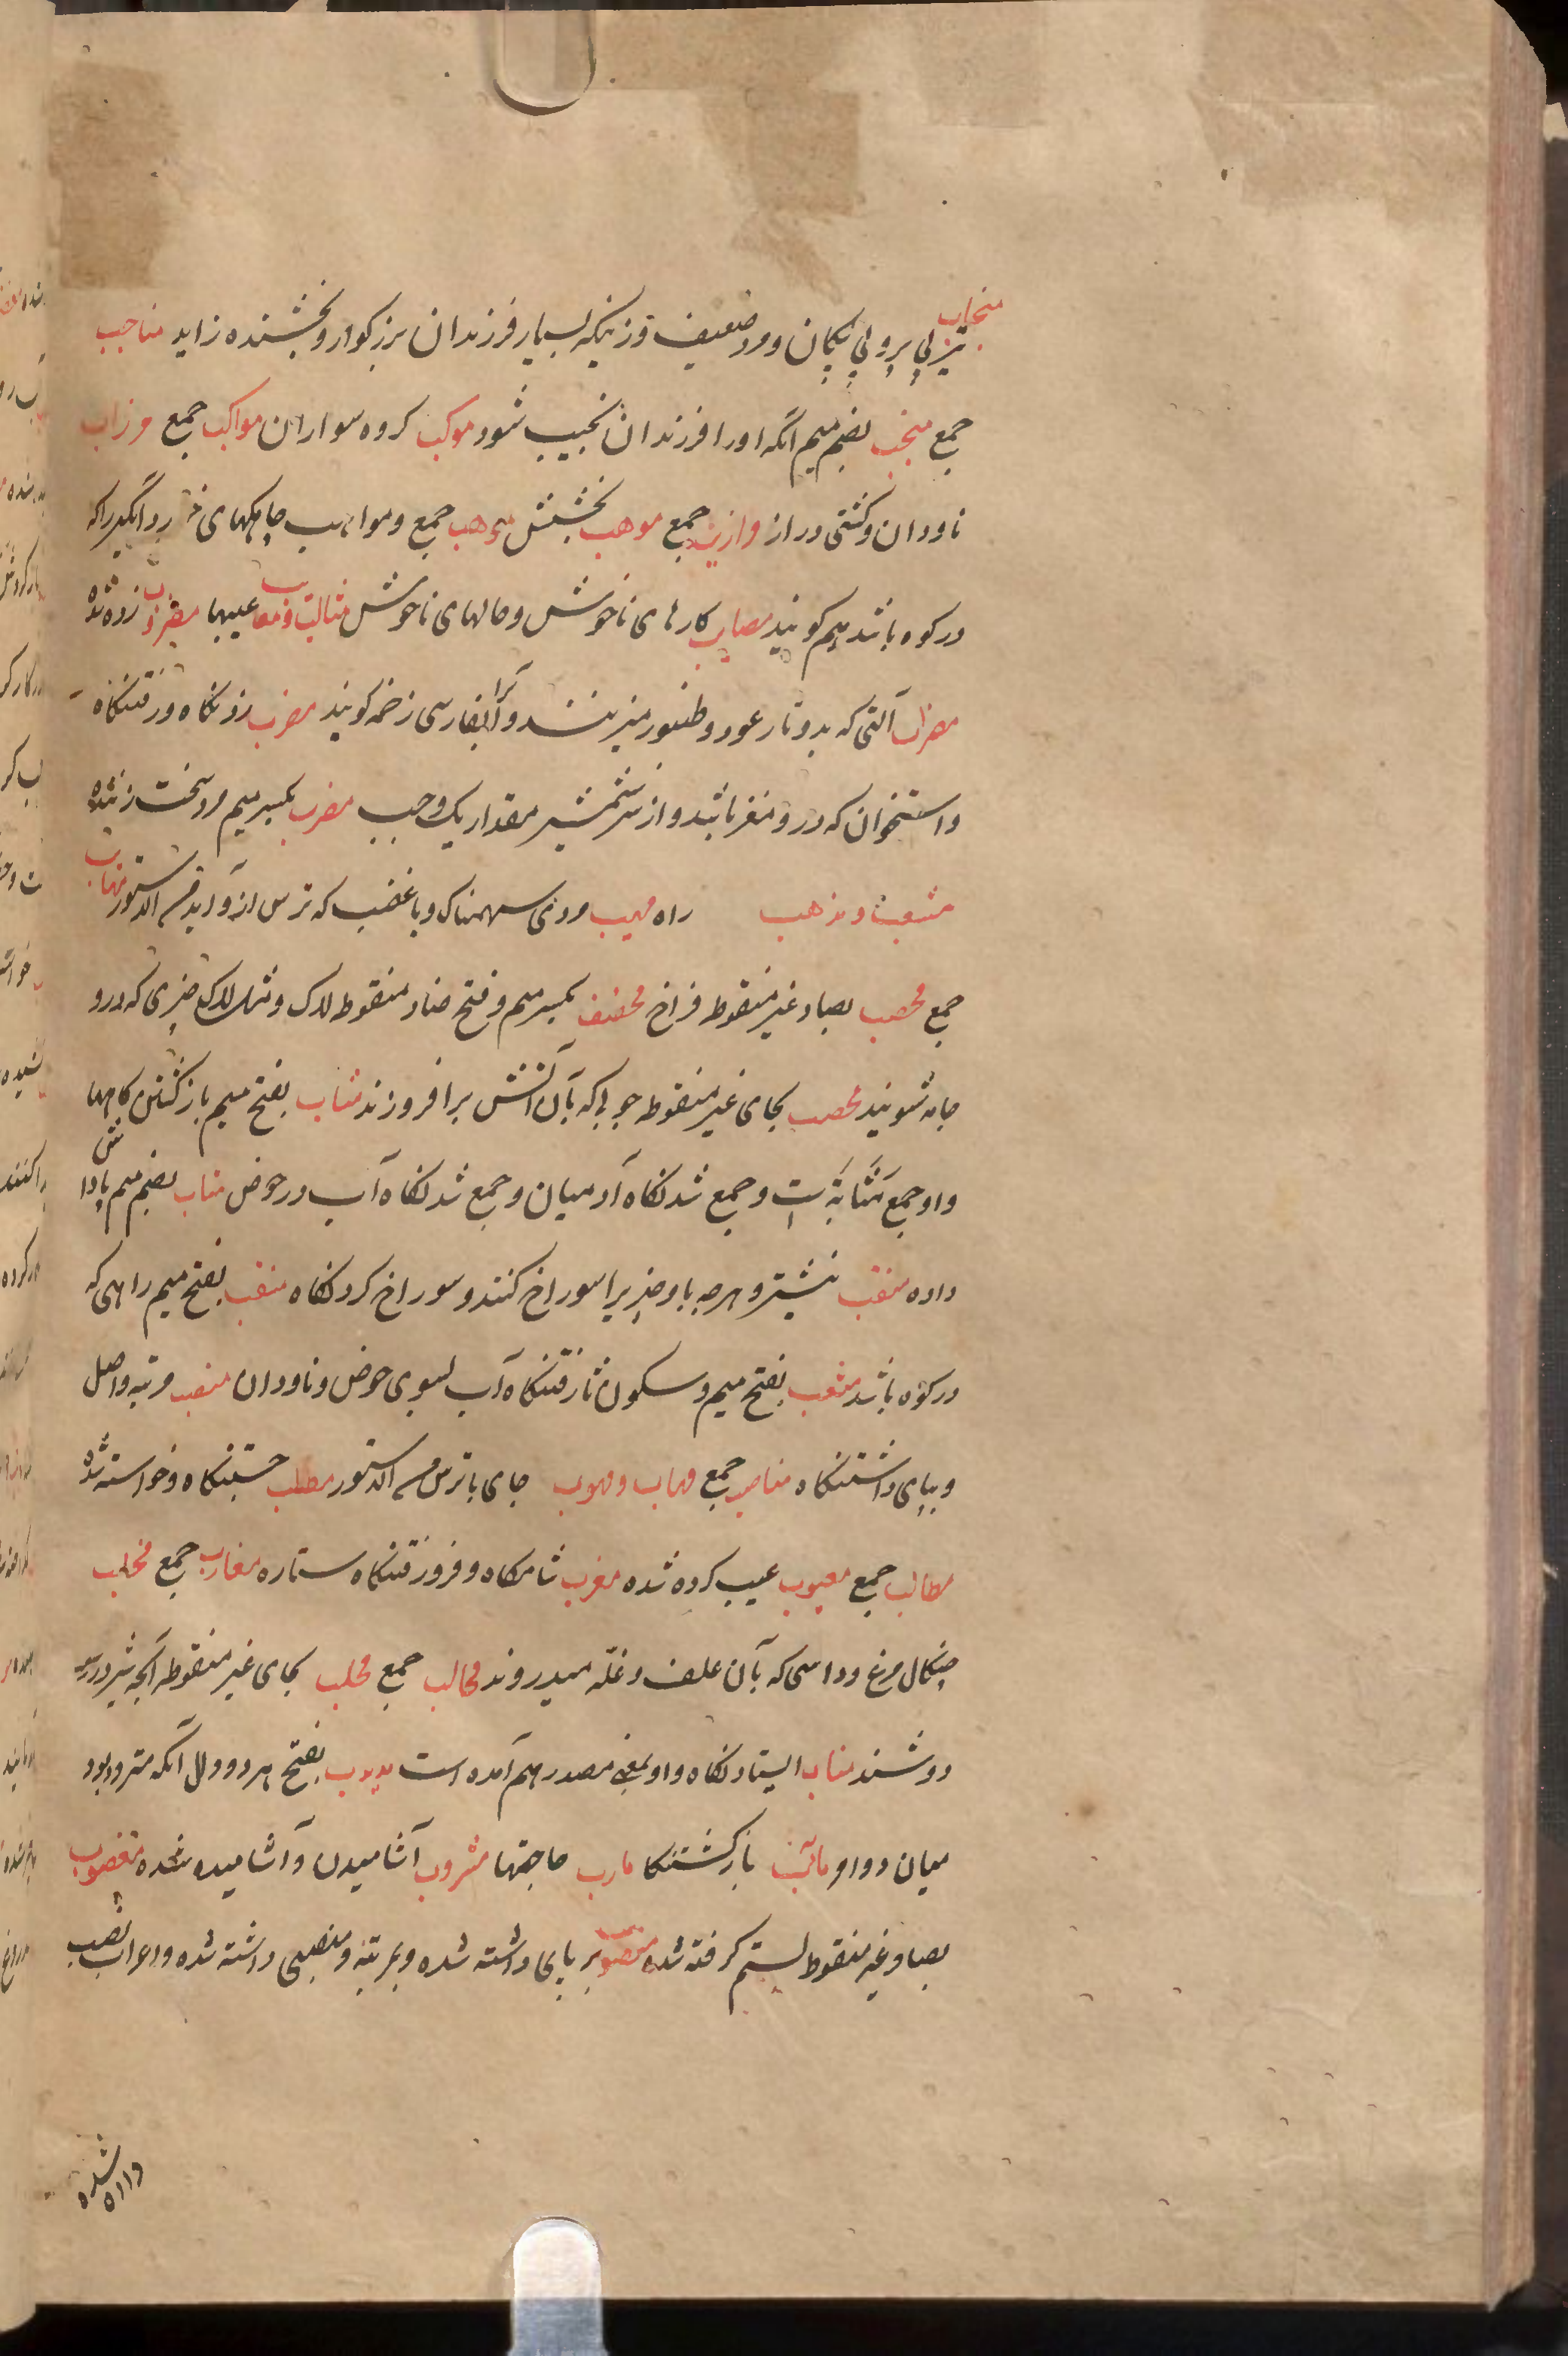 منجاب
تیر بی پر و بی پیکان و مرد ضعیف و زنیکه بسیار فرزندان بزرکوار و بخشنده زاید مناجب
جمع منجب بضم میم آنکه اورا فرزندان نجیب شود موکب کروه سواران مواکب جمع مرزاب
ناودان و کشتی دراز مرازیب جمع موهب بخشش موهب جمع و مواهب چاهکهای خرد آبگیر را که
در کوه باشد هم کویند مصایب کارهای ناخوش و حالهای ناخوش مثالب و معایب عیبها مضروب زده شده
مضراب آلتی که بدو تار عود و طنبور میزنند و آنرا بفارسی زخمه کویند مضرب زدنکاه و رفتنکاه
و استخوان که درو مغز باشد و از سر شمشیر مقدار یک وجب مضرب بکسر میم مرد سخت زننده
مشعب و مذهب راه مهیب مردی سهمناک و با غضب که ترس از و آید مهاب
جمع مخصب بصاد غیر منقوط فراخ مخضب بکسر میم و فتح ضاد منقوط لاک و مثل لاک چیزی که درو
جامه شویند محصب بحای غیر منقوطه چوبی که بآن آتش برافروزند مثاب بفتح میم بازکشتن کاهها
و او جمع مَثَابَة است و جمع شدنکاه آدمیان و جمع شدنکاه آب در حوض مثاب بضم میم پاداش
داده منقب نیشتر و هرچه باو چیزیرا سوراخ کنند و سوراخ کردنکاه منقب بفتح میم راهی که
در کوه باشد مثعب بفتح میم و سکون ثا رفتنکاه آب بسوی حوض و ناودان منصب مرتبه و اصل
و بپای داشتنکاه مناصب جمع مهاب و مهوب جای با ترس مطلب جستنکاه و خواسته شده
مطالب جمع معیوب عیب کرده شده مغرب شامکاه و فرو رفتنکاه ستاره مغارب جمع مخلب
چنکال مرغ و داسی که بآن علف و غله میدروند مخالب جمع محلب بحای غیر منقوطه آنچه شیر درو
دوشند مناب ایستادنکاه و او بمعنی مصدر هم آمده است مذبذب بفتح هر دو ذال آنکه متردد بود
میان دو امر مآئب بازکشتنکا مارب حاجتها مشروب آشامیدن و آشامیده شده مغصوب
بصاد غیر منقوط بستم کرفته شده منصوب بر پای داشته شده و بمرتبه و منصبی داشته شده و اعراب نصب
داده شده